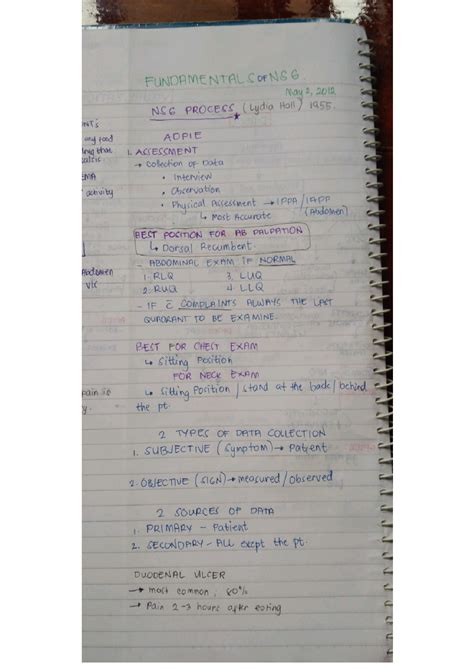 FUNDAMENTALS OF NSG.
May 2, 2012
NSG PROCESS (Lydia Hall) 1955.
ADPIE
1. ASSESSMENT
→ Collection of Data
• Interview
• Observation
• Physical Assessment → IPPA / IAPP
↳ Most Accurate (Abdomen)
BEST POSITION FOR AB PALPATION
↳ Dorsal Recumbent.
- ABDOMINAL EXAM IF NORMAL
1. RLQ 3. LUQ
2. RUQ 4. LLQ
- IF c̄ COMPLAINTS ALWAYS THE LAST
QUADRANT TO BE EXAMINE.
BEST FOR CHEST EXAM
↳ Sitting Position
FOR NECK EXAM
↳ Sitting Position / stand at the back / behind
the pt.
2 TYPES OF DATA COLLECTION
1. SUBJECTIVE (Symptom) → Patient
2. OBJECTIVE (SIGN) → measured / observed
2 SOURCES OF DATA
1. PRIMARY - Patient
2. SECONDARY - ALL except the pt.
DUODENAL ULCER
→ most common, 80%
→ Pain 2-3 hours after eating